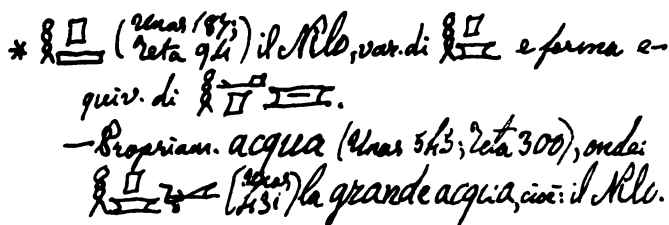 * 𓎛𓊪𓈇 (Unas 187; Teta 94) il Nilo, var. di 𓎛𓊪𓈇 e forma e-
quiv. di 𓎛𓂝𓊪𓈘.
— Propriam. acqua (Unas 545; Teta 300), onde:
(Unas 431) la grande acqua, cioè: il Nilo.